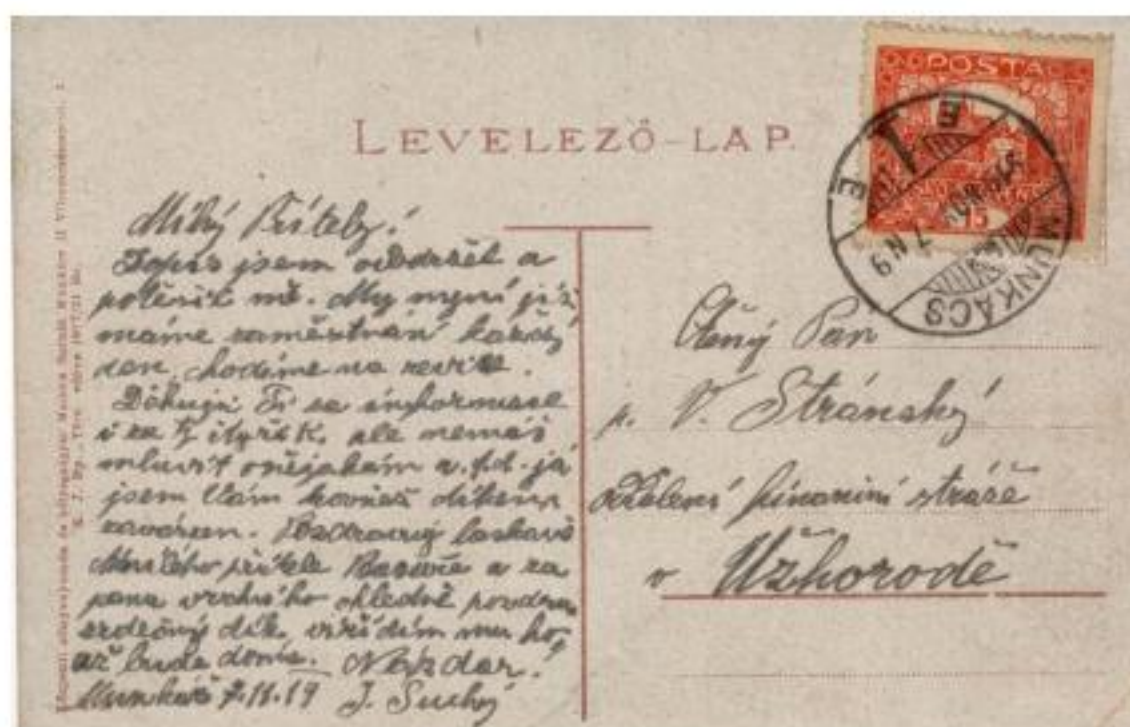 LEVELEZŐ-LAP.
POSTA
15
MUNKÁCS
Milý Příteli!
Dopis jsem obdržel a
potěšil mě. My nyní již
máme zaměstnání každý
den, chodíme na revise.
Děkuji Ti za informace
i za ale nemáš
mluvit a.t.d. já
jsem Vám díkem
zavázán. Pozdravuj laskavě
přítele a za
pana vrchního ohledně pozdravu
srdečný dík, vyřídím mu ho,
až bude doma. Nazdar!
Munkáč 7.11.19 J. Suchý
Ctěný Pan
p. V. Stránský
oddělení finanční stráže
v Užhorodě